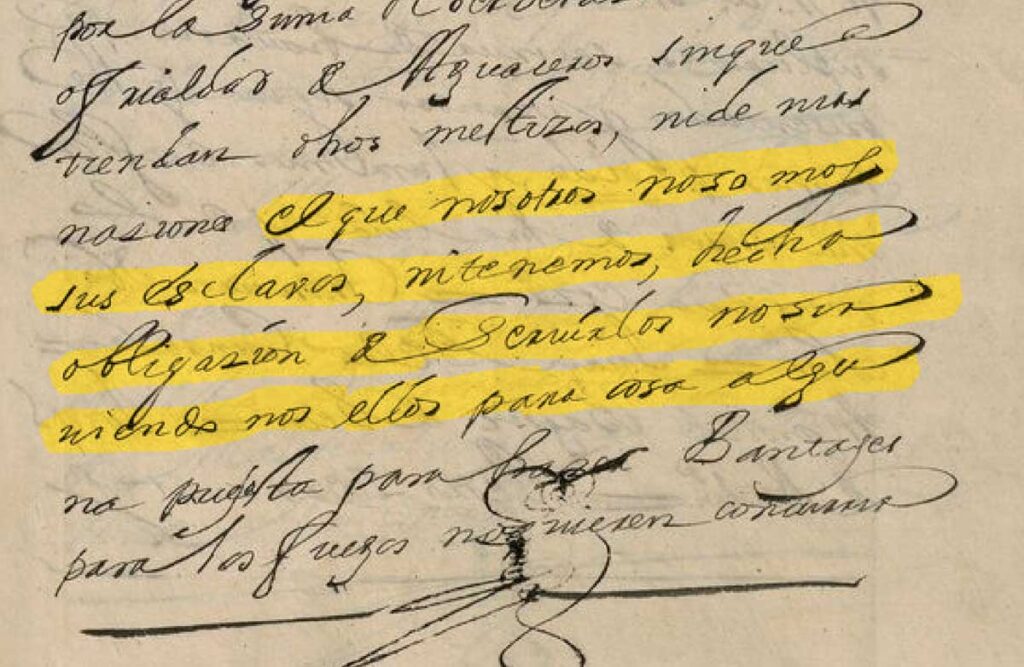 por la suma
frialdad de Aguaseros sin que e
tiendan dhos mestizos, ni de mas
nasiones el que nosotros no so mos
sus esclavos, ni tenemos, hecha
obligasion de Servirlos no sir
viendo nos ellos para cosa algu
na pues asta para hazer Bantages
para los fuegos no quieren concurrir